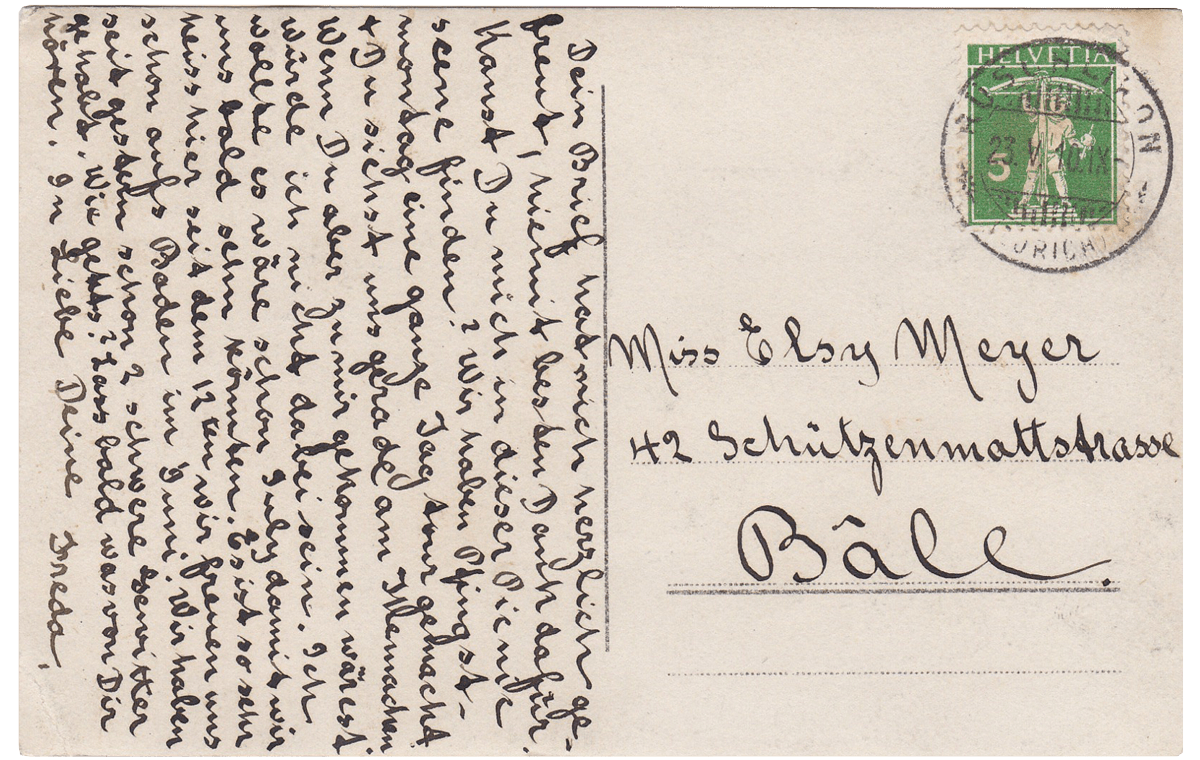 Dein Brief hat mich herzlich ge-
freut, hiemit besten Dank dafür.
Kanst Du mich in dieser Picnic
scene finden? Wir haben Pfingst-
montag eine ganze Tag tour gemacht
+ Du siehst uns gerade am Thee machen
Wenn Du aber zu mir gekommen wärest
würde ich nicht dabei sein. Ich
wollte es wäre schon July damit wir
uns bald sehn könnten. Es ist so sehr
heiss hier seit dem 12ten wir freuen uns
schon aufs Baden im Juni. Wir haben
seit gestern schon 2 schwere Gewitter
gehabt. Wie gehts? Lass bald was von Dir
hören. In Liebe Deine Freda.
HELVETIA
5
RÜSCHLIKON
23. V. 10. IX
(ZÜRICH)
Miss Elsy Meyer
42 Schützenmattstrasse
Bâle.